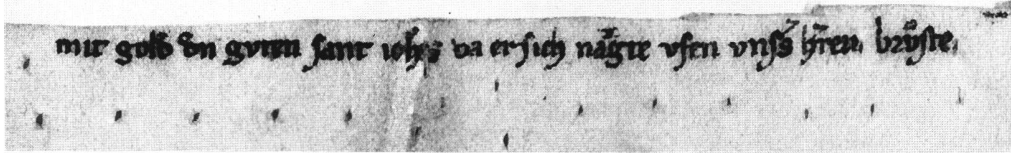 mit gold dn gvten sant ioh's da er sich naͥgte vfen vns̄ h̄ren brv̊ste.